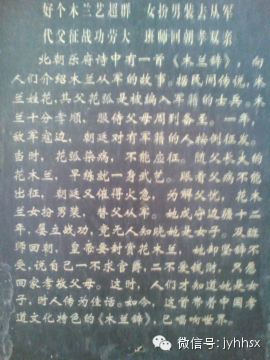 好个木兰艺超群 女扮男装去从军
代父征战功劳大 班师回朝孝双亲
北朝乐府诗中有一首《木兰辞》，向
人们介绍木兰从军的故事。据民间传说，木
兰姓花，其父花弧是被编入军籍的士兵。木
兰十分孝顺，服侍父母周到备至。一年，
敌军寇边，朝廷对有军籍的人抽例征发。
当时，花弧染病，不能应征。随父长大的
花木兰，早练就一身武艺。眼看父病不能
出征，朝廷又催得火急，为解父忧，花木
兰女扮男装，替父从军。她戍守边疆十二
年，屡立战功，竟无人知晓她是女子。及班
师回朝，皇帝要封赏花木兰，她却坚辞不
受，说自己一不求官爵，二不爱钱财，只愿
回家孝敬父母。这时，人们才知道她是女
子，时人传为佳话。如今，这首带着中国孝
道文化特色的《木兰辞》，已唱响世界。
微信号：jyhhsx